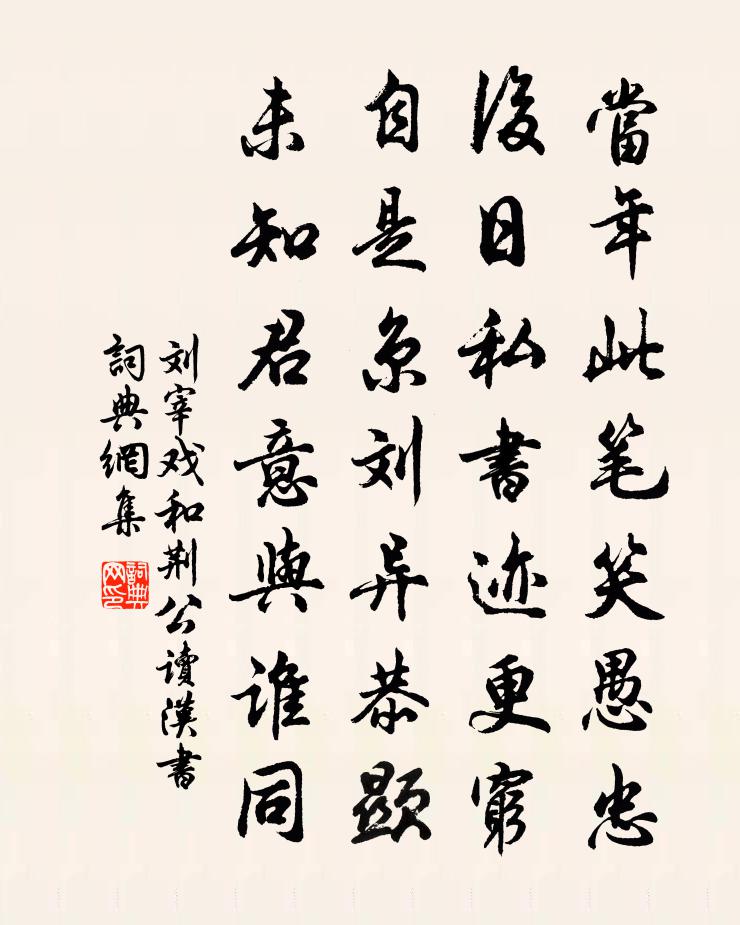 當年此笔笑愚忠
後日私書迹更窮
自是京刘异恭顯
未知君意與誰同
刘宰戏和荆公讀漢書
詞典網集
詞典
网印